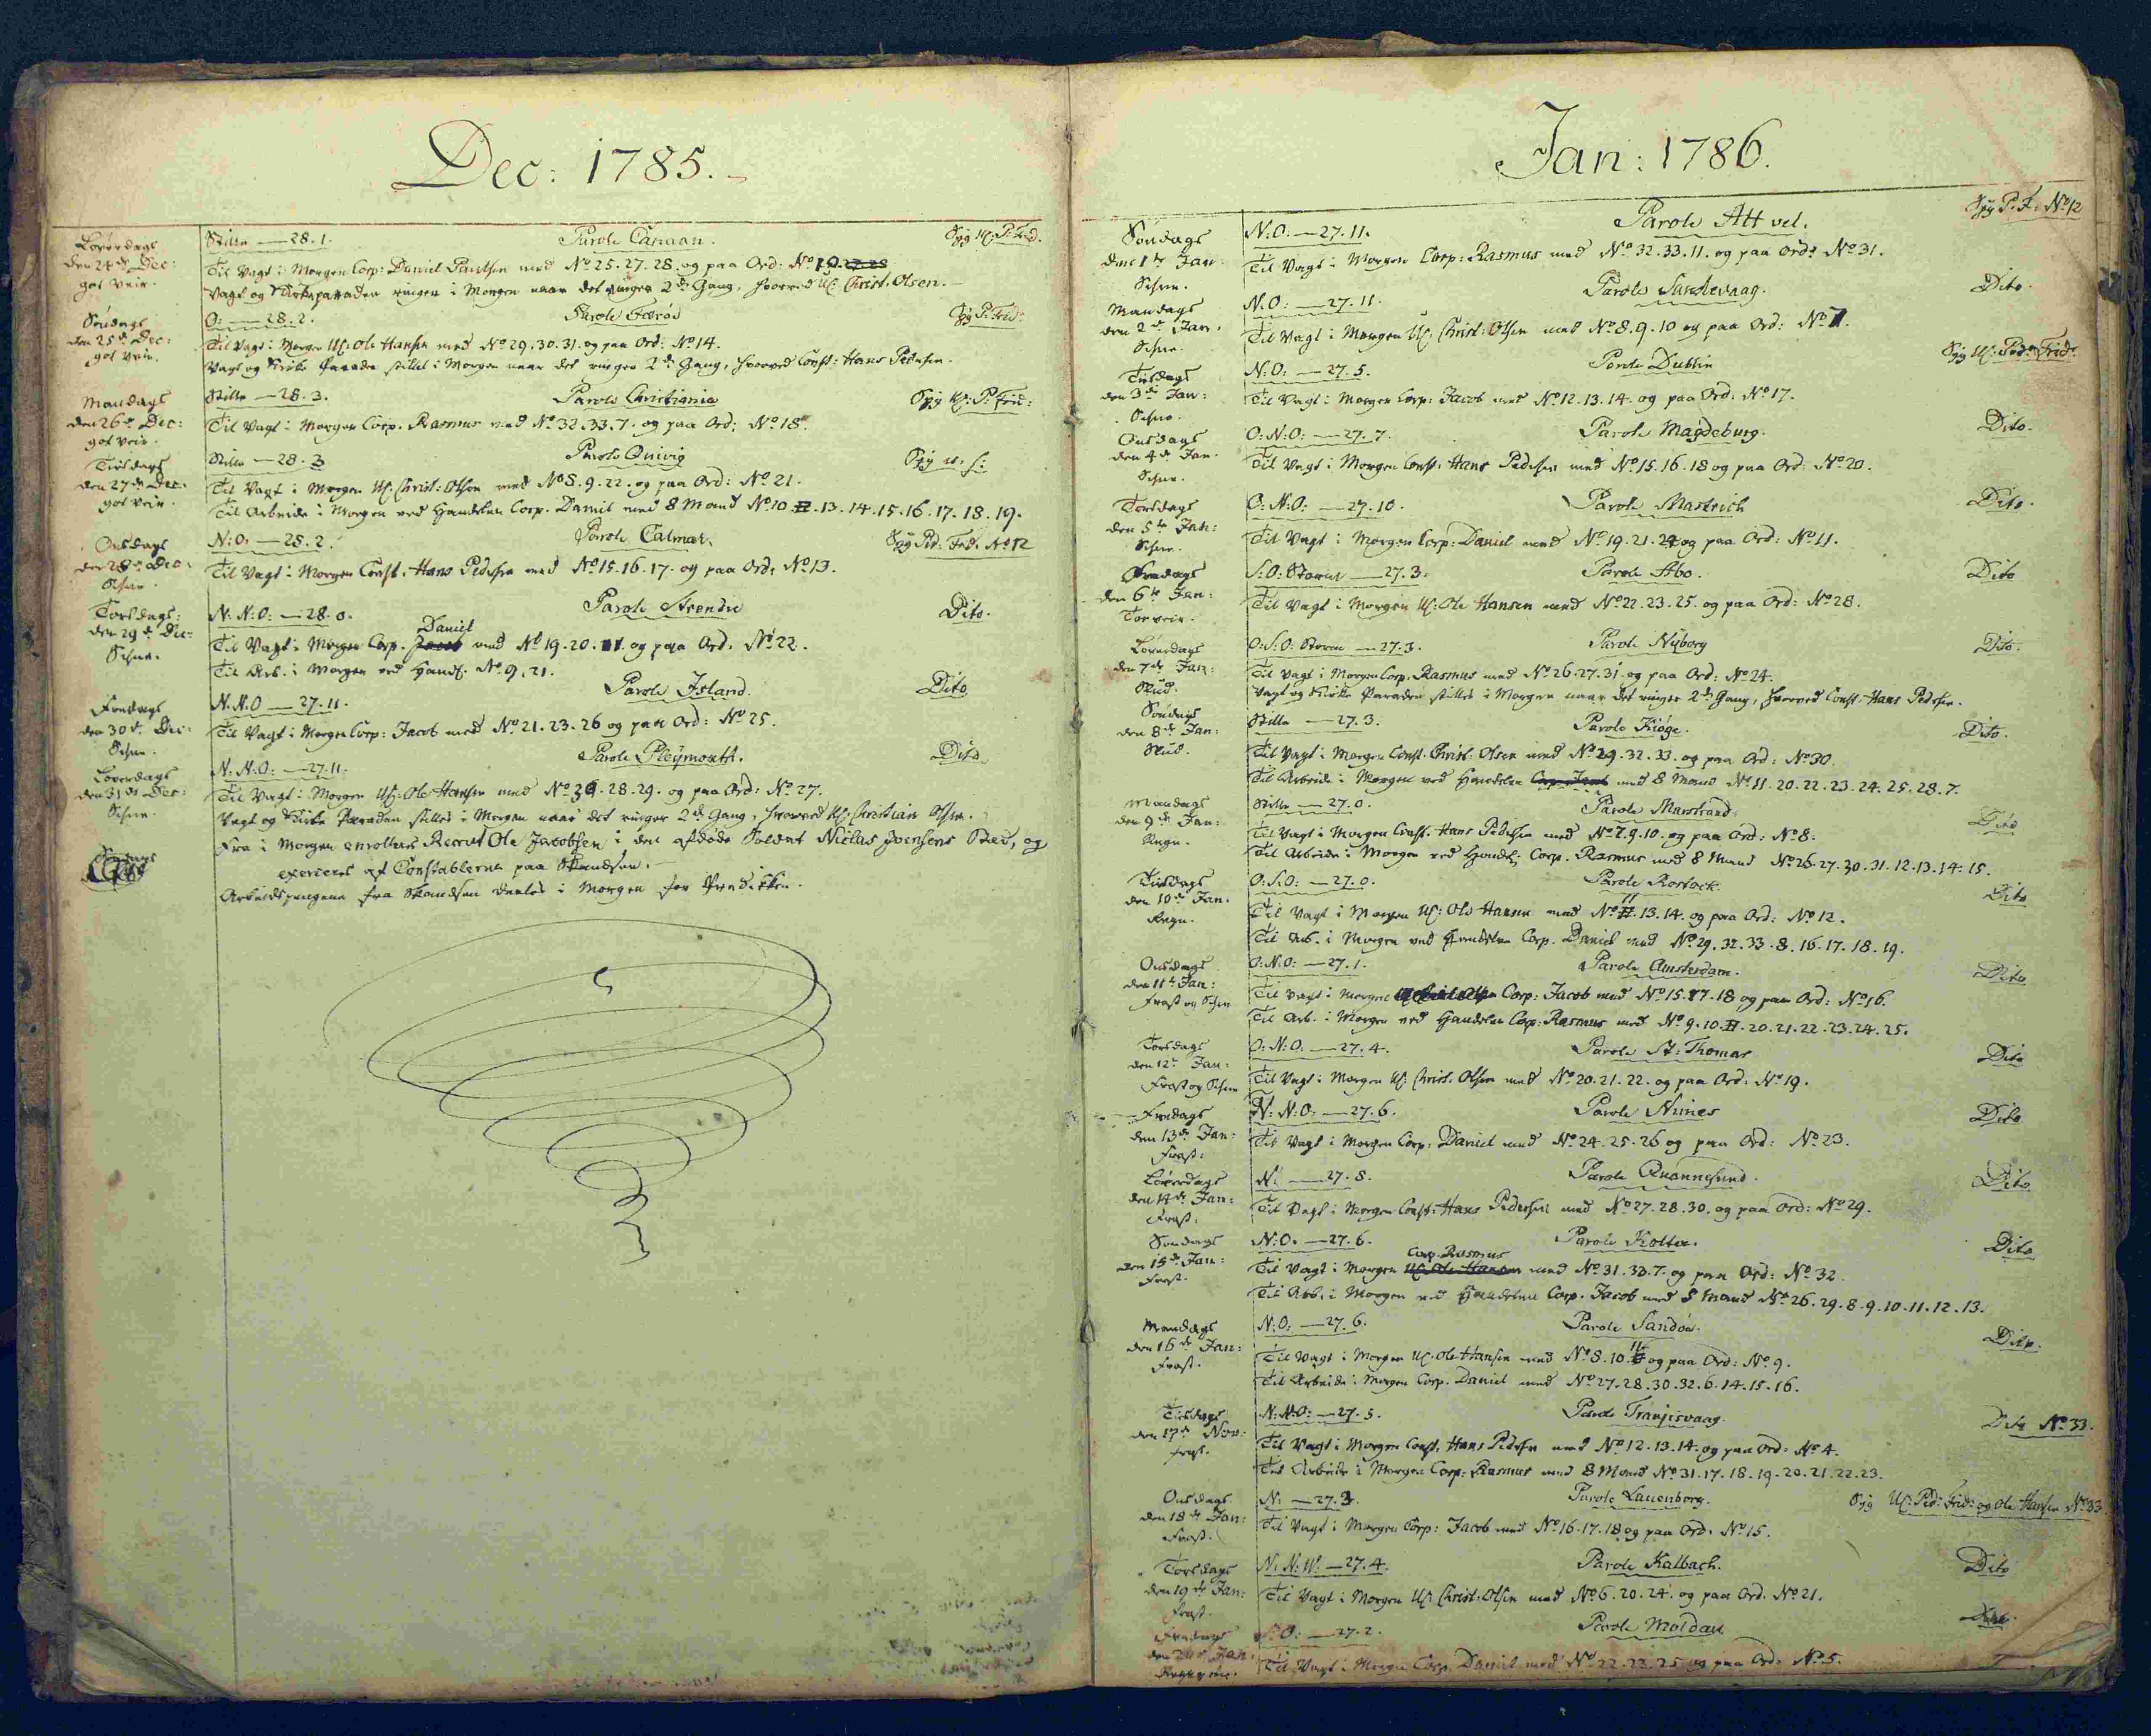 Dec: 1785.
Löverdags
den 24de Dec:
got Veir.
Stille — 28.1.
Parole Canaan.
Syg Uf. P: Frid.
Til Vagt i Morgen Corp: Daniel Poulsen med No 25.27.28. og paa Ord: No
Vagt og Kirkeparaden ringer i Morgen naar det ringer 2de Gang, hvorved Uf. Christ. Olsen.
Söndags
den 25de Dec:
got Veir.
O: — 28.2.
Parole Færöe
Syg P. Frid:
Til Vagt i Morgen Uf: Ole Hansen med No 29.30.31. og paa Ord: No 14.
Vagt og Kirke Paraden stilles i Morgen naar det ringer 2de Gang, hvorved Const: Hans Pedersen.
Mandags
den 26de Dec:
got Veir.
Stille — 28.3.
Parole Christiania
Syg Uf: P: Frid:
Til Vagt i Morgen Corp. Rasmus med No 32.33.7. og paa Ord: No 18.
Tirsdags
den 27de Dec:
got Veir.
Stille — 28.3
Parole Quivig
Syg u. s:
Til Vagt i Morgen Uf. Christ: Olsen med No 8.9.22. og paa Ord: No 21.
Til Arbeide i Morgen ved Handelen Corp. Daniel med 8 Mand No 10. 13.14.15.16.17.18.19.
Onsdags
den 28de Dec:
Schne
N:O: — 28.2.
Parole Calmar.
Syg Ped: Frid. No 12
Til Vagt i Morgen Const. Hans Pedersen med No 15.16.17. og paa Ord: No 13.
Torsdags:
den 29de Dec:
Schne.
N:N:O: — 28.0.
Parole Strendre
Dito.
Daniel
Til Vagt i Morgen Corp. Jacob med No 19.20. og paa Ord. No 22.
Til Arb. i Morgen ved Hand: No 9.21.
Fredags
den 30de Dec:
Schne.
N.N.O — 27.11.
Parole Island.
Dito
Til Vagt i Morgen Corp: Jacob med No 21.23.26 og paa Ord: No 25.
Löverdags
den 31de Dec:
Schne.
N:N:O: — 27.11.
Parole Pleymouth.
Dito
Til Vagt i Morgen Uf: Ole Hansen med No 28.29. og paa Ord: No 27.
Vagt og Kirke Paraden stilles i Morgen naar det ringer 2de Gang, hvorved Uf. Christian Olsen.
Fra i Morgen enrolleres Recrut Ole Jacobsen i den afdöde Soldat Niclas Joensens Sted, og
exerceres af Constablerne paa Skandsen.
Arbeidspengene fra Skandsen deeles i Morgen for Prediken.
Jan: 1786.
Söndags
den 1te Jan:
Schne.
N:O: — 27.11.
Parole Att vel.
Syg P. F. No 12
Til Vagt i Morgen Corp: Rasmus med No 32.33.11. og paa Ord: No 31.
Mandags
den 2de Jan:
Schne.
N.O: — 27.11.
Parole Sandevaag.
Dito.
Til Vagt i Morgen Uf. Christ: Olsen med No 8.9.10 og paa Ord: No 7.
Tirsdags
den 3de Jan:
Schne.
N.O: — 27.5.
Parole Dublin
Syg Uf: Ped: Frid:
Til Vagt i Morgen Corp: Jacob med No 12.13.14. og paa Ord: No 17.
Onsdags
den 4de Jan.
Schne.
O:N:O: — 27.7.
Parole Magdeburg.
Dito.
Til Vagt i Morgen Const: Hans Pedersen med No 15.16.18 og paa Ord: No 20.
Torsdags
den 5te Jan:
Schne.
O:N:O: — 27.10.
Parole Mastrich
Dito.
Til Vagt i Morgen Corp: Daniel med No 19.21.24 og paa Ord: No 11.
Fredags
den 6te Jan:
Töe veir.
S:O: Storm — 27.3.
Parole Abo.
Dito
Til Vagt i Morgen Uf: Ole Hansen med No 22.23.25. og paa Ord: No 28.
Löverdags
den 7de Jan:
Slud.
O:S:O: Storm — 27.3.
Parole Nyborg
Dito.
Til Vagt i Morgen Corp. Rasmus med No 26.27.31 og paa Ord: No 24.
Vagt og Kirke Paraden stilles i Morgen naar det ringer 2de Gang, hvorved Const: Hans Pedersen.
Söndags
den 8de Jan:
Slud.
Stille — 27.3.
Parole Kiöge.
Dito.
Til Vagt i Morgen Const. Christ. Olsen med No 29.32.33. og paa Ord: No 30.
Til Arbeide i Morgen ved Handelen Corp. Jacob med 8 Mand No 11.20.22.23.24.25.28.7.
Mandags
den 9de Jan:
Regn.
Stille — 27.0.
Parole Marstrand.
Dito
Til Vagt i Morgen Const. Hans Pedersen med No 7.9.10. og paa Ord: No 8.
Til Arbeide i Morgen ved Handel: Corp. Rasmus med 8 Mand No 26.27.30.31.12.13.14.15.
Tirsdags
den 10de Jan.
Regn.
O:S:O: — 27.0.
Parole Rostock.
Dito
11
Til Vagt i Morgen Uf: Ole Hansen med No 13.14. og paa Ord: No 12.
Til Arb. i Morgen ved Handelen Corp. Daniel med No 29.32.33.8.16.17.18.19.
Onsdags
den 11te Jan:
Frost og Schne
O:N.O: — 27.1.
Parole Amsterdam.
Dito
Til Vagt i Morgen Corp: Jacob med No 15.17.18 og paa Ord: No 16.
Til Arb. i Morgen ved Handelen Corp: Rasmus med No 9.10. 20.21.22.23.24.25.
Torsdags
den 12te Jan:
Frost og Schne
O:N:O. — 27.4.
Parole St: Thomas
Dito
Til Vagt i Morgen Uf. Christ. Olsen med No 20.21.22. og paa Ord. No 19.
Fredags
den 13de Jan:
Frost:
N:N:O: — 27.6.
Parole Nimes
Dito
Til Vagt i Morgen Corp: Daniel med No 24.25.26 og paa Ord: No 23.
Löverdags
den 14de Jan:
Frost.
N: — 27.8.
Parole Quannesund.
Dito
Til Vagt i Morgen Const: Hans Pedersen med No 27.28.30. og paa Ord: No 29.
Söndags
den 15de Jan:
Frost.
N:O. — 27.6.
Parole Kolter.
Dito
Corp. Rasmus
Til Vagt i Morgen Uf. Ole Hansen med No 31.33.7. og paa Ord: No 32.
Til Arb. i Morgen ved Handelen Corp. Jacob med 8 Mand No 26.29.8.9.10.11.12.13.
Mandags
den 16de Jan:
Frost.
N:O: — 27.6.
Parole Sandöe.
Dito.
11
Til Vagt i Morgen Uf: Ole Hansen med No 8.10. og paa Ord: No 9.
Til Arbeide i Morgen Corp. Daniel med No 27.28.30.32.6.14.15.16.
Tirsdags
den 17de Nov:
Frost.
N:N:O: — 27.5.
Parole Tranjisvaag.
Dito No 33.
Til Vagt i Morgen Const. Hans Pedersen med No 12.13.14. og paa Ord: No 4.
Til Arbeide i Morgen Corp: Rasmus med 8 Mand No 31.17.18.19.20.21.22.23.
Onsdags
den 18de Jan:
Frost.
N: — 27.3.
Parole Lauenborg.
Syg Uf: Ped: Frid: og Ole Hansen No 33
Til Vagt i Morgen Corp: Jacob med No 16.17.18 og paa Ord. No 15.
Torsdags
den 19de Jan:
Frost.
N:N:W: — 27.4.
Parole Kalbach.
Dito
Til Vagt i Morgen Uf. Christ: Olsen med No 6.20.24. og paa Ord. No 21.
Fredags
den 20de Jan:
O: — 27.2.
Parole Moldau
Til Vagt i Morgen Corp. Daniel med No 22.23.25 og paa Ord: No 5.